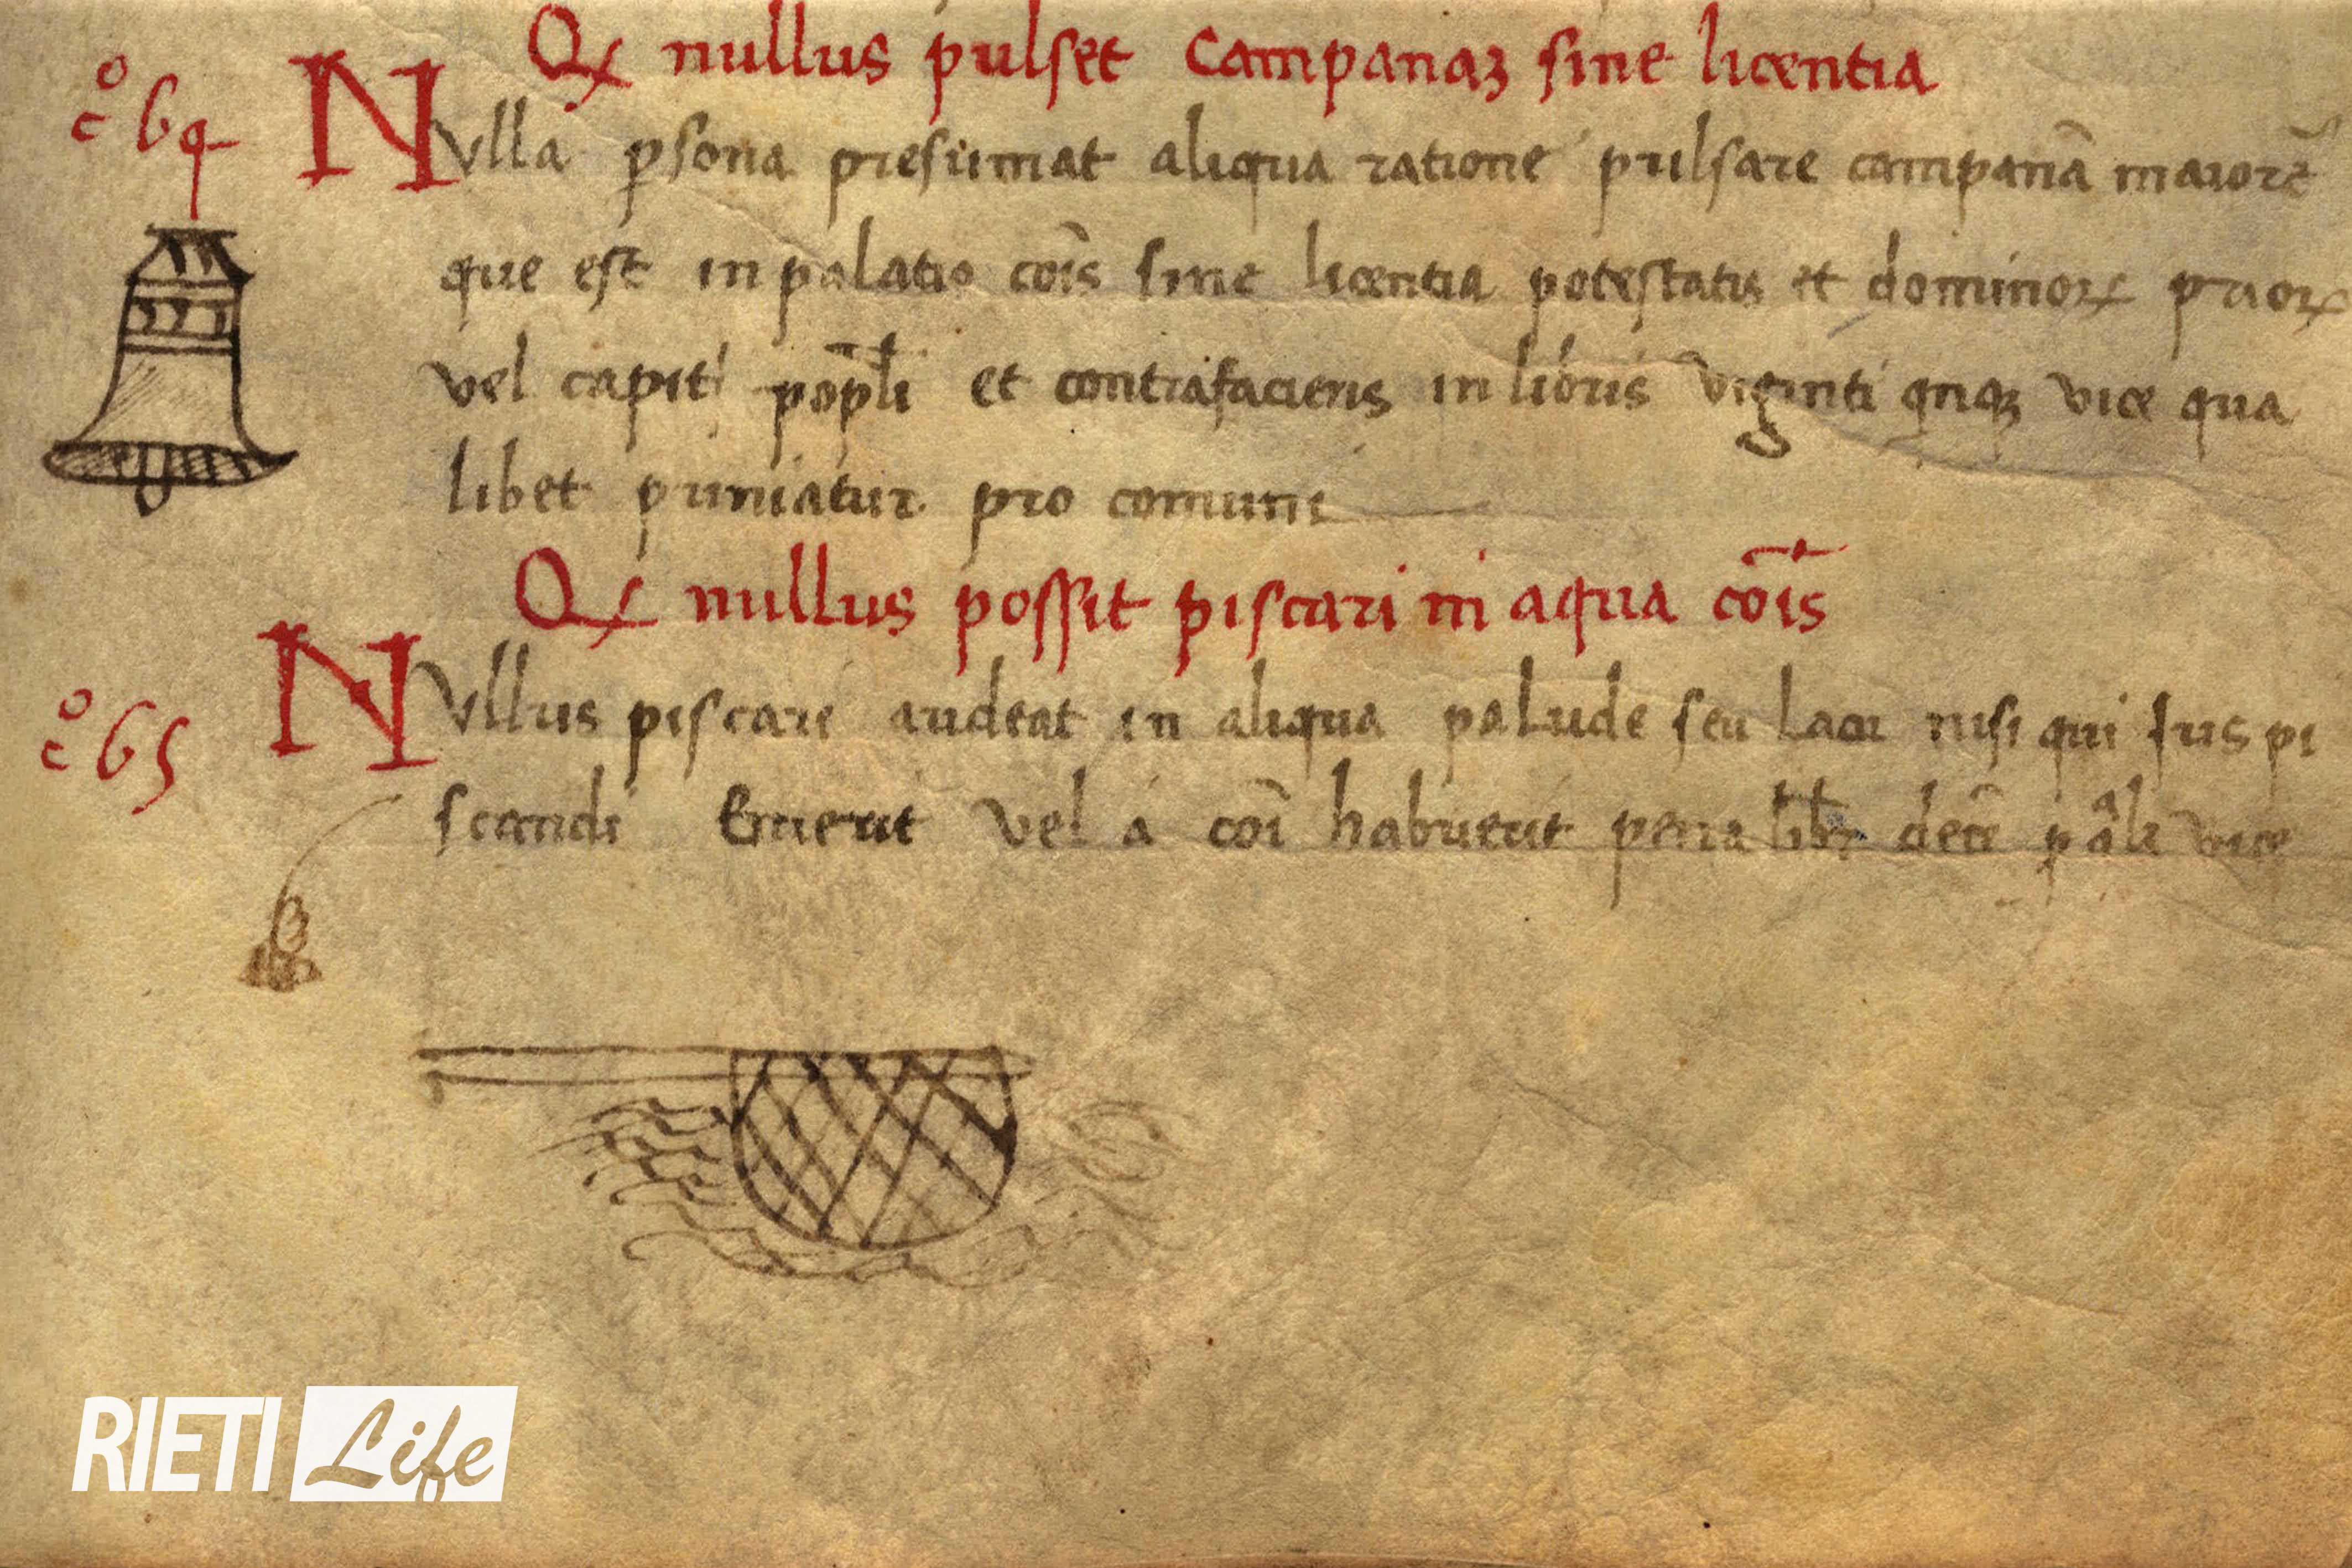 Qꝝ nullus pulset Campanaꝫ sine licentia
cº 64 Nulla ꝑsona presumat aliqua ratione pulsare campanã maiorẽ
que est in palatio cõis sine licentia potestatis et dominoꝝ prioꝝ
vel capiti popli et contrafaciens in libris viginti qnqꝫ vice qua
libet puniatur pro comuni
Qꝝ nullus possit piscari in aqua cõis
cº 65 Nullus piscari audeat in aliqua palude seu lacu nisi qui ius pi
scandi Emerit vel a coi habuerit pena libr decẽ ꝑ vice
RIETI Life